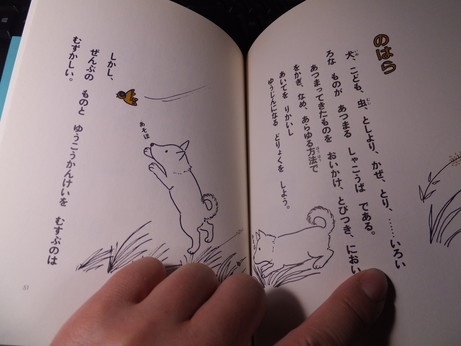 のはら
犬、こども、虫、としより、かぜ、とり、……いろい
ろな ものが あつまる しゃこうば である。
あつまってきたものを おいかけ、とびつき、におい
をかぎ、なめ、あらゆる方法で
あいてを りかいし
ゆうじんになる どりょくを しよう。
あそぼ
しかし、
ぜんぶの ものと ゆうこうかんけいを むすぶのは
むずかしい。